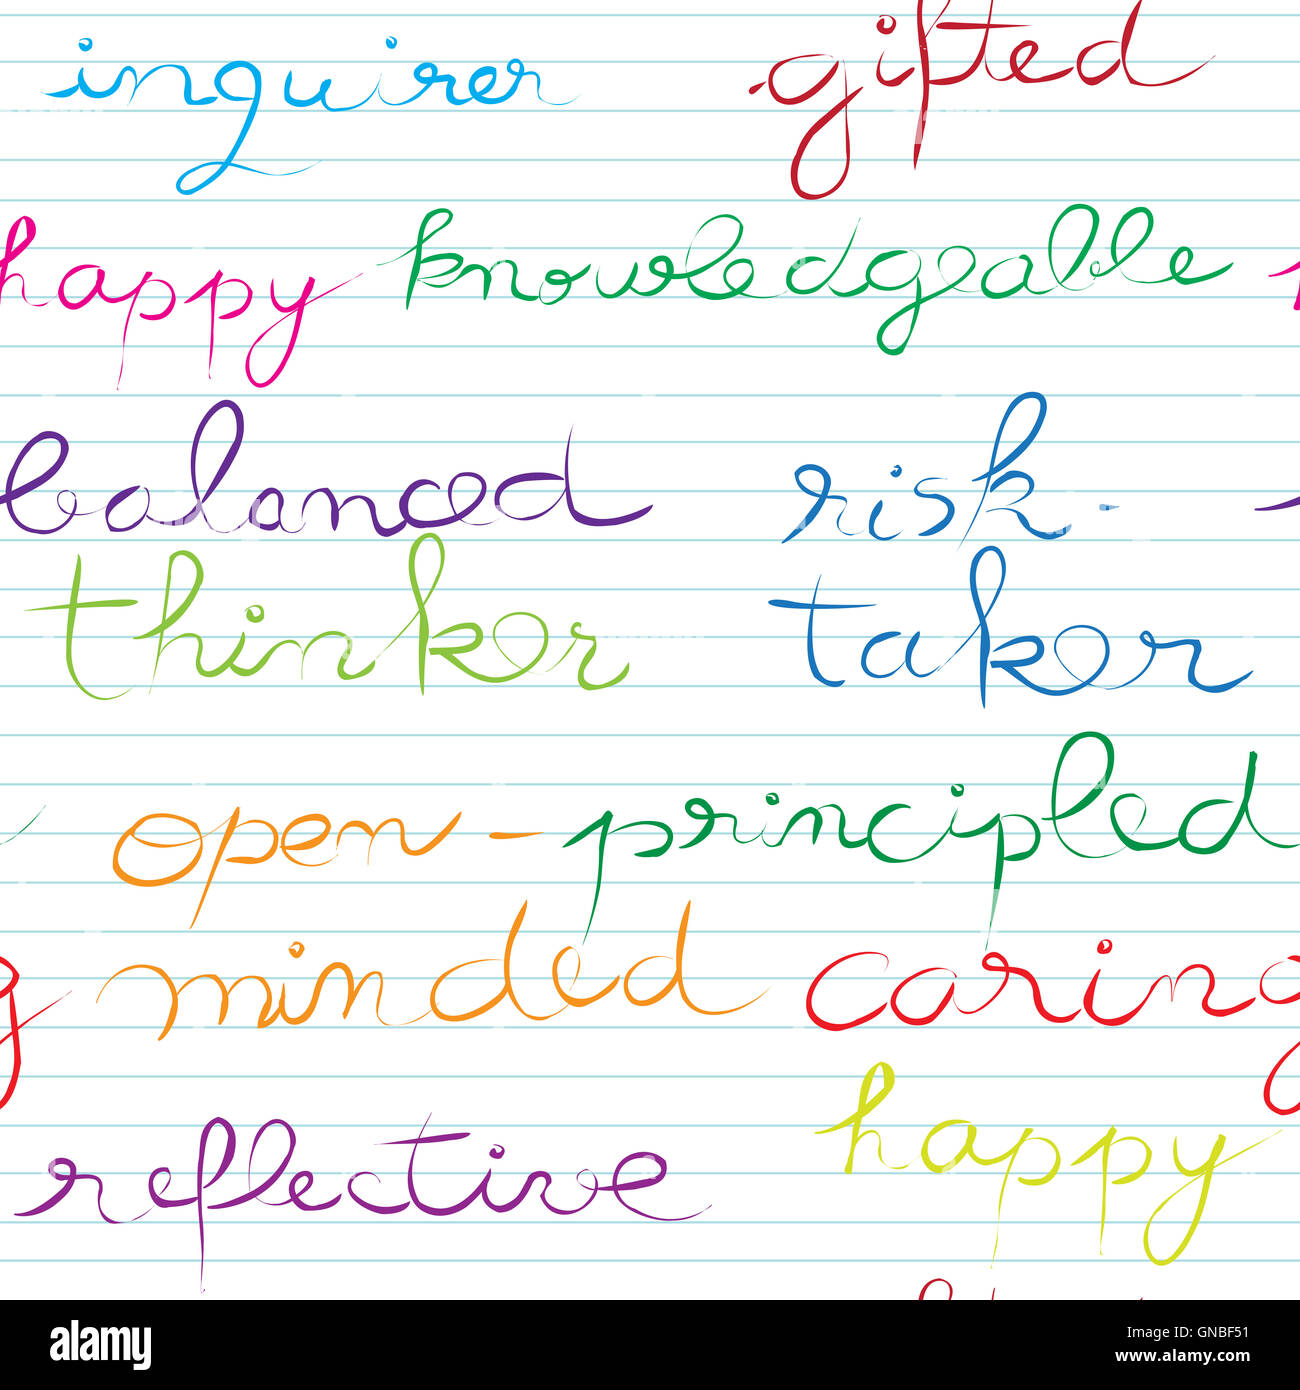 inquirer gifted
happy knowledgeable
balanced risk-
thinker taker
open- principled
minded caring
happy
reflective
alamy
Image ID: GNBF51
www.alamy.com